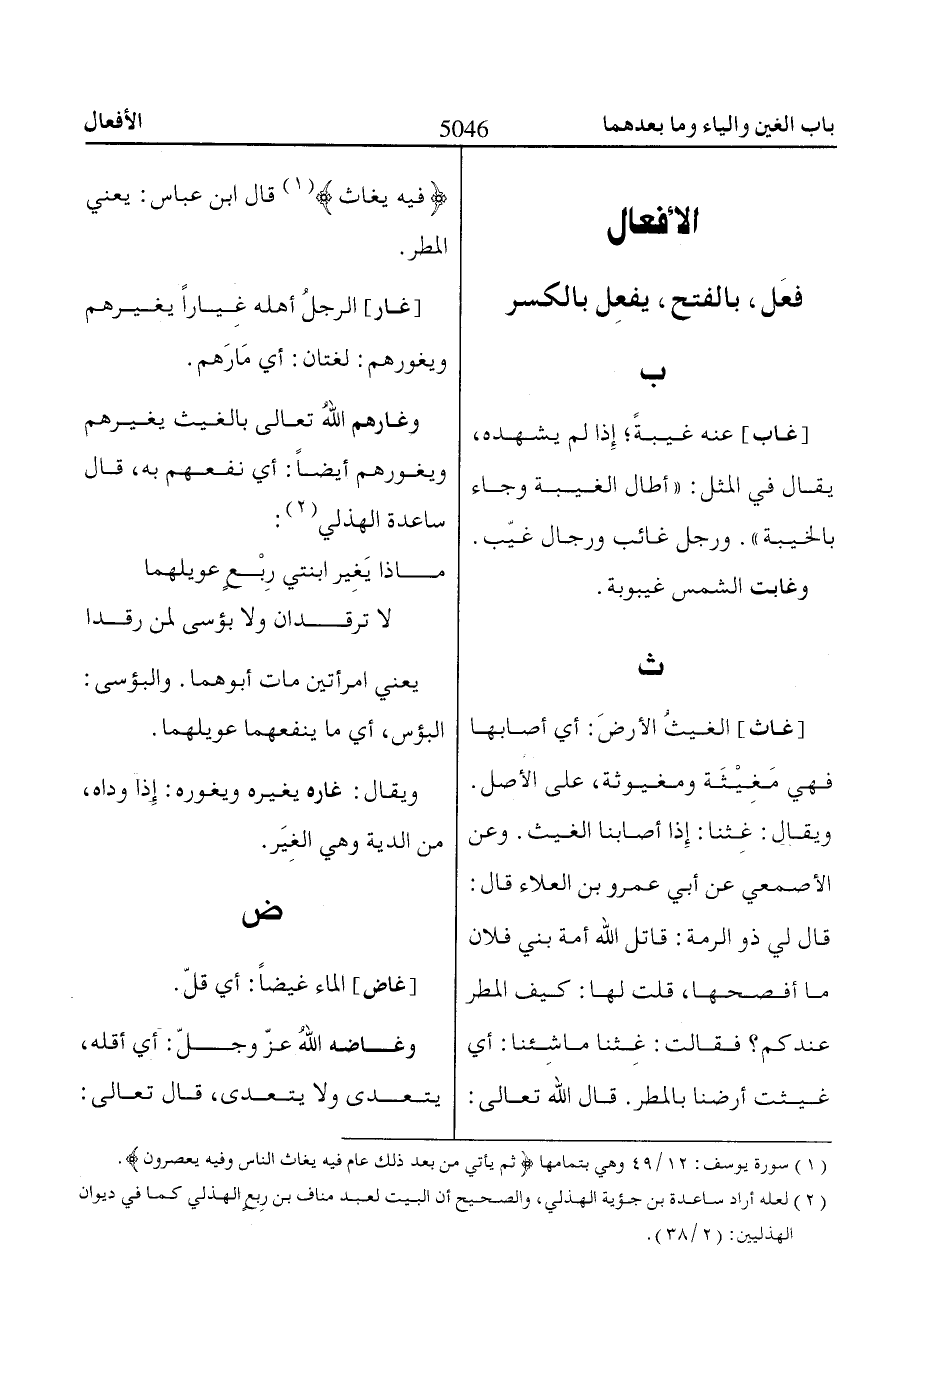 باب الغين والياء وما بعدهما
5046
الأفعال
الأفعال
فعَل، بالفتح، يفعِل بالكسر
ب
[غاب] عنه غيبةً؛ إذا لم يشهده،
يقال في المثل: «أطال الغيبة وجاء
بالخيبة». ورجل غائب ورجال غيّب.
وغابت الشمس غيبوبة.
ث
[غاث] الغيثُ الأرضَ: أي أصابها
فهي مَغيْثَة ومغيوثة، على الأصل.
ويقال: غِثنا: إذا أصابنا الغيث. وعن
الأصمعي عن أبي عمرو بن العلاء قال:
قال لي ذو الرمة: قاتل الله أمة بني فلان
ما أفصحها، قلت لها: كيف المطر
عندكم؟ فقالت: غِثنا ماشِئنا: أي
غيثت أرضنا بالمطر. قال الله تعالى:
﴿فيه يغاث﴾(١) قال ابن عباس: يعني
المطر.
[غار] الرجلُ أهله غِياراً يغيرهم
ويغورهم: لغتان: أي مَارَهم.
وغارهم اللهُ تعالى بالغيث يغيرهم
ويغورهم أيضاً: أي نفعهم به، قال
ساعدة الهذلي(٢):
ماذا يَغِير ابنتي رِبْعٍ عويلهما
لا ترقدان ولا بؤسى لمن رقدا
يعني امرأتين مات أبوهما. والبؤسى:
البؤس، أي ما ينفعهما عويلهما.
ويقال: غاره يغيره ويغوره: إذا وداه،
من الدية وهي الغِيَر.
ض
[غاض] الماء غيضاً: أي قلّ.
وغاضه اللهُ عزّ وجلّ: أي أقله،
يتعدى ولا يتعدى، قال تعالى:
(١) سورة يوسف: ٤٩/١٢ وهي بتمامها ﴿ثم يأتي من بعد ذلك عام فيه يغاث الناس وفيه يعصرون﴾.
(٢) لعله أراد ساعدة بن جؤية الهذلي، والصحيح أن البيت لعبد مناف بن ربع الهذلي كما في ديوان
الهذليين: (٣٨/٢).